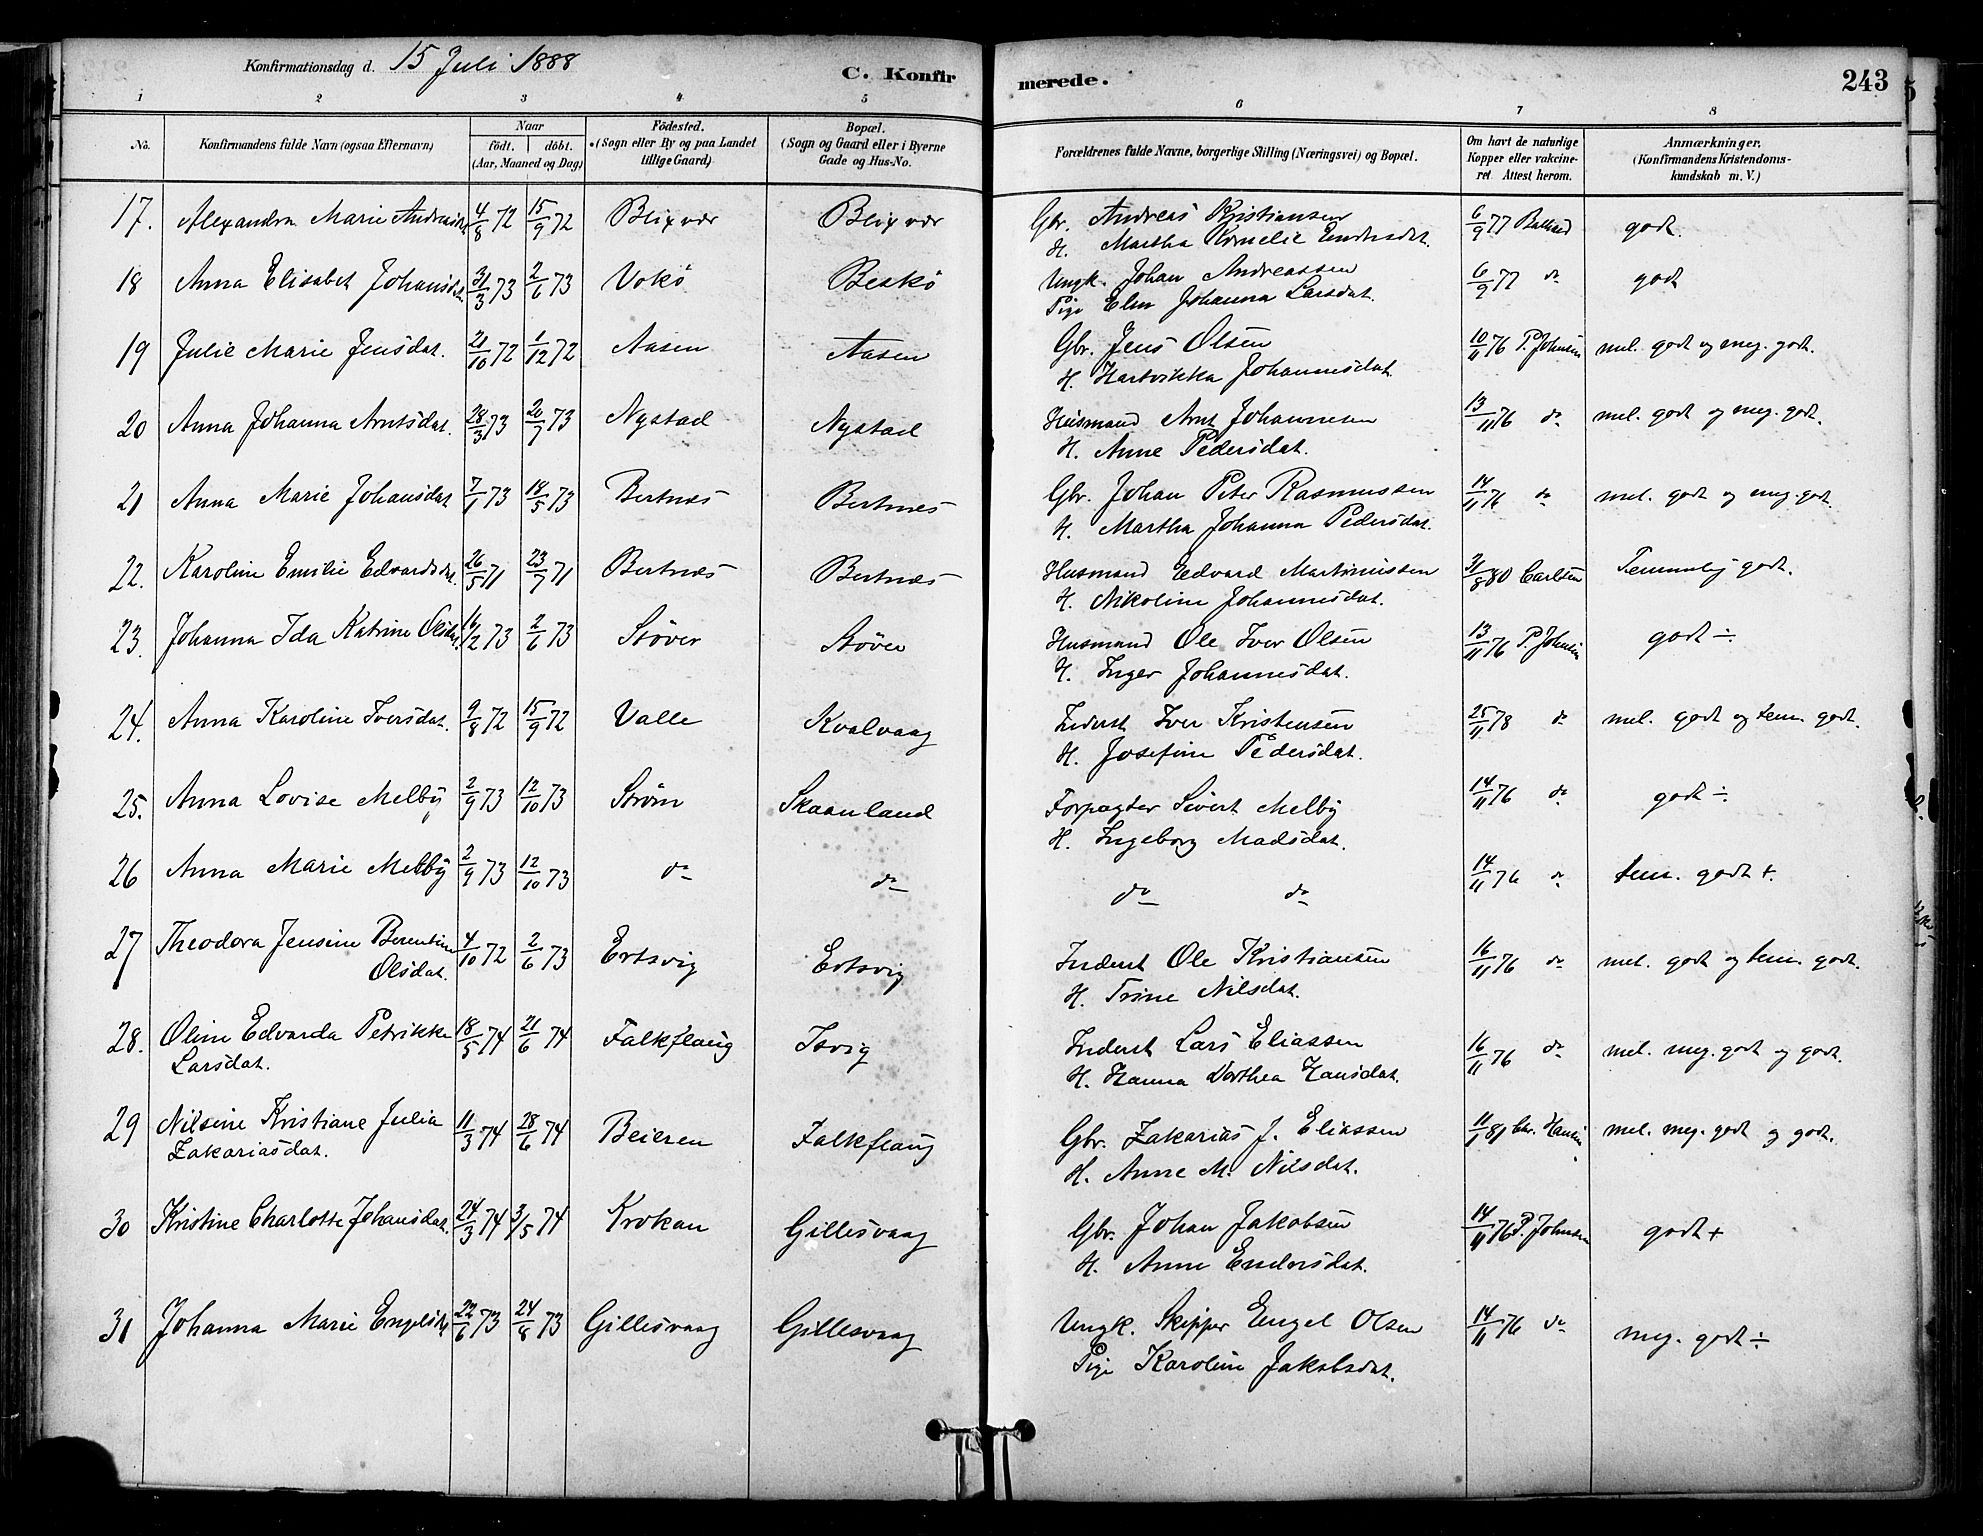 Konfirmationsdag d. 15 Juli 1888 C. Konfirmerede. 243
1 2 3 4 5 6 7 8
No. Konfirmandens fulde Navn (ogsaa Efternavn) Naar födt. döbt. (Aar, Maaned og Dag) Födested. (Sogn eller By og paa Landet tillige Gaard) Bopæl. (Sogn og Gaard eller i Byerne Gade og Hus-No. Forældrenes fulde Navne, borgerlige Stilling (Næringsvei) og Bopæl. Om havt de naturlige Kopper eller vakcineret. Attest herom. Anmærkninger. (Konfirmandens Kristendomskundskab m. V.)
17. Alexandra Marie Andreasdat. 4/8 72 15/9 72 Blixvær Blixvær Gbr. Andreas Kristiansen 6/9 77 godt.
H. Martha Kornelie Endresdat.
18 Anna Elisabet Johansdat. 31/3 73 2/6 73 Vokö Beskö Ungk. Johan Andreassen 6/9 77 do godt
Pige Elen Johanna Larsdat.
19 Julie Marie Jensdat. 21/10 72 1/12 72 Aasen Aasen Gbr. Jens Olsen 10/11 76 P. Johnsen mel. godt og meg. godt.
H. Hartvikka Johannesdat.
20 Anna Johanna Arntsdat. 28/3 73 20/7 73 Nystad Nystad Husmand Arnt Johannesen 13/11 76 do mel. godt og meg. godt.
H. Anne Pedersdat.
21 Anna Marie Johansdat 7/1 73 18/5 73 Bertnes Bertnes Gbr. Johan Peter Rasmussen 14/11 76 do mel. godt og meg. godt
H. Martha Johanna Pedersdat.
22. Karoline Emilie Edvardsdat. 26/5 71 23/7 71 Bertnes Bertnes Husmand Edvard Martinussen 31/8 80 Carlsen Temmelig godt.
H. Nikoline Johannesdat.
23. Johanna Ida Katrine Olsdat. 2 73 2/6 73 Støver Støver Husmand Ole Iver Olsen 13/11 76 P. Johnsen godt ÷
H. Inger Johannesdat.
24. Anna Karoline Iversdat. 9/8 72 15/9 72 Valle Kvalvaag Inderst Iver Kristensen 25/11 78 do mel. godt og tem. godt.
H. Josefine Pedersdat.
25. Anna Lovise Melby 2/9 73 12/10 73 Strøm Skaanland Forpagter Sivert Melby 14/11 76 do godt ÷
H. Ingeborg Madsdat.
26 Anna Marie Melby 2/9 73 12/10 73 do do do do 14/11 76 do tem. godt +.
27 Theodora Jensine Berentine 4/10 72 2/6 73 Ertsvig Ertsvig Inderst Ole Kristiansen 16/11 76 do mel. godt og tem. godt.
Olsdat. H. Trine Nilsdat.
28. Oline Edvarda Petrikke 18/5 74 21/6 74 Falkflaug Isvig Inderst Lars Eliassen 16/11 76 do mel. meg. godt og godt.
Larsdat. H. Hanna Dorthea Hansdat.
29 Nilsine Kristiane Julia 11/3 74 28/6 74 Beieren Falkflaug Gbr. Zakarias J. Eliassen 11/1 81 Chr. Hansen mel. meg. godt og godt.
Zakariasdat. H. Anne M. Nilsdat.
30 Kristine Charlotte Johansdat. 24/3 74 3/5 74 Krokan Gillesvaag Gbr. Johan Jakobsen 14/11 76 P. Johnsen godt +
H. Anne Endersdat.
31 Johanna Marie Engelsdat. 22/6 73 24/8 73 Gillesvaag Gillesvaag Ungk. Skipper Engel Olsen 14/11 76 do meg. godt ÷
Pige Karoline Jakobsdat.